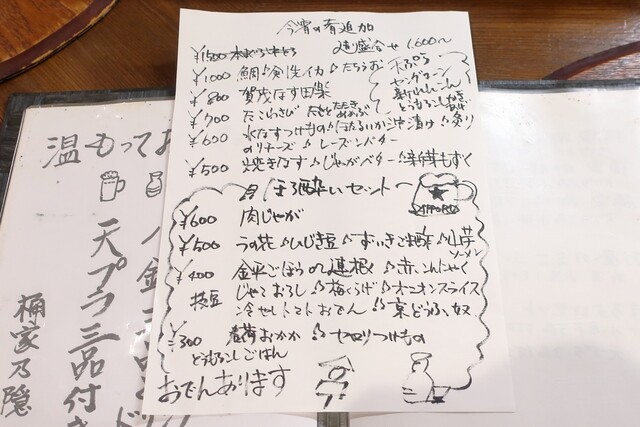 今宵の肴追加
¥1500 本まぐろ中とろ 造り盛合せ 1,600〜
¥1000 鯛♪剣先イカ♪たちうお
天ぷら
¥800 賀茂なす田楽
ヤングコーン
新れんこん
とうもろこし
¥700 たこわさび たたき
¥600 水なすつけもの♪ほたるいか沖漬け♪炙り
レーズンバター
¥500 焼きなす♪じゃがバター♪ もずく
ほろ酔いセット
SAPPORO
¥600 肉じゃが
¥500 うの花♪ひじき豆♪ずいきごま酢♪山芋ソーメン
¥400 金平ごぼう 蓮根♪赤こんにゃく
枝豆 じゃこおろし♪梅くらげ♪オニオンスライス
冷せしトマトおでん♪京どうふ奴
¥300 おかか♪セロリつけもの
とうもろこしごはん
おでんあります
温まって
天プラ三品付
桶家乃隠